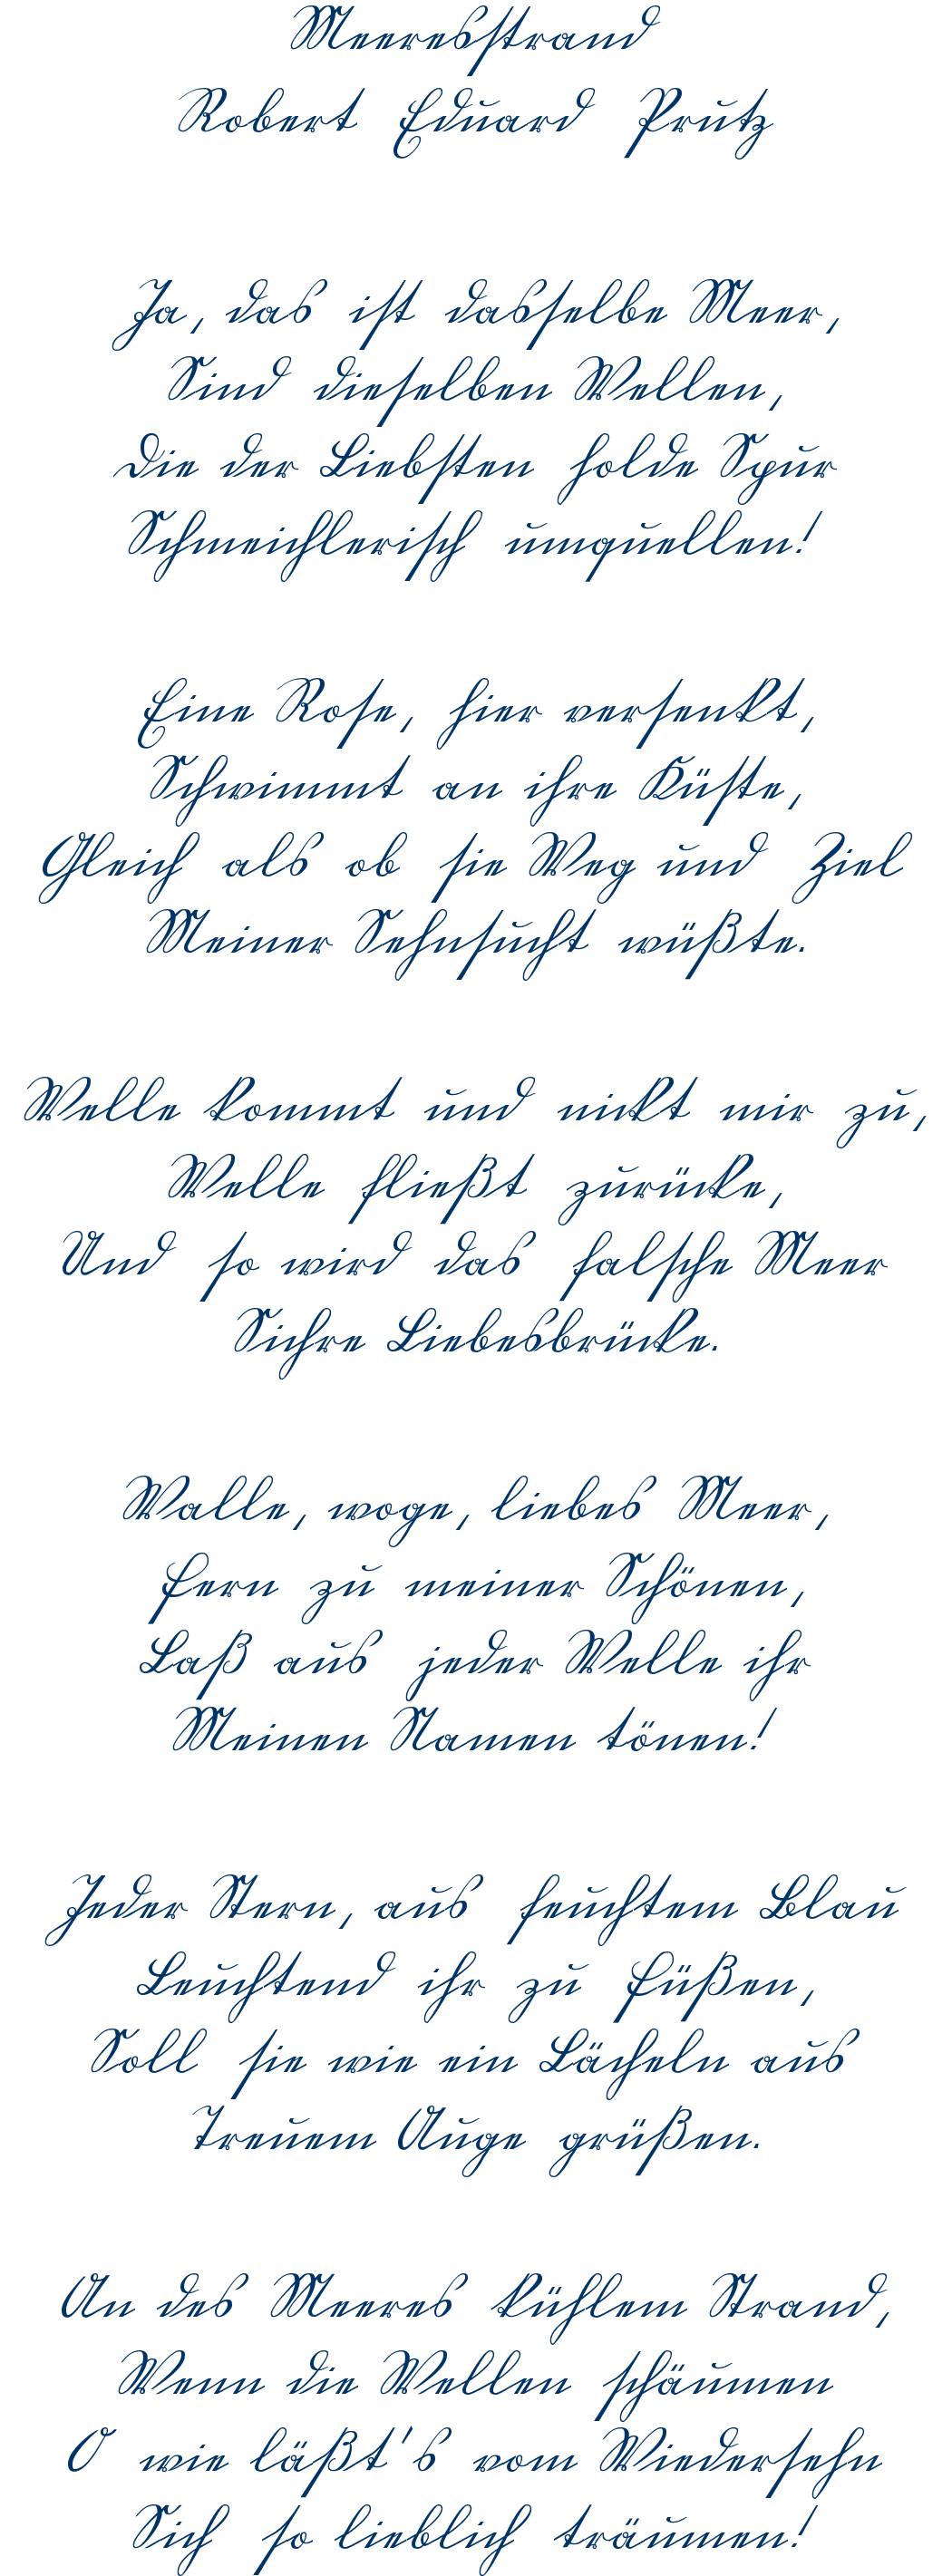 Meeresstrand
Robert Eduard Prutz
Ja, das ist dasselbe Meer,
Sind dieselben Wellen,
Die der Liebsten holde Spur
Schmeichlerisch umquellen!
Eine Rose, hier versenkt,
Schwimmt an ihre Küste,
Gleich als ob sie Weg und Ziel
Meiner Sehnsucht wüßte.
Welle kommt und nickt mir zu,
Welle fließt zurücke,
Und so wird das falsche Meer
Sichre Liebesbrücke.
Walle, woge, liebes Meer,
Fern zu meiner Schönen,
Laß aus jeder Welle ihr
Meinen Namen tönen!
Jeder Stern, aus feuchtem Blau
Leuchtend ihr zu Füßen,
Soll sie wie ein Lächeln aus
Treuem Auge grüßen.
An des Meeres kühlem Strand,
Wenn die Wellen schäumen
O wie läßt's vom Wiedersehn
Sich so lieblich träumen!